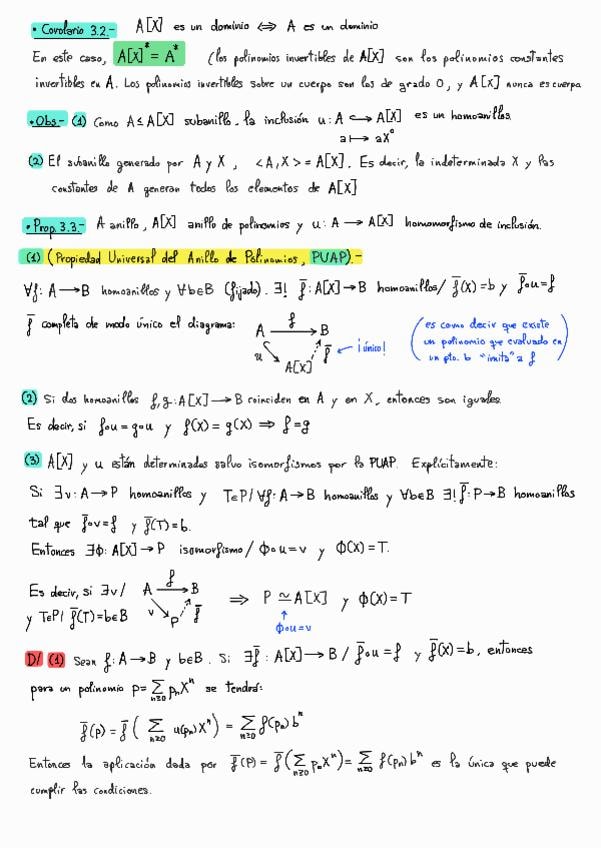 • Corolario 3.2.- A[X] es un dominio ⟺ A es un dominio
En este caso, A[X]* = A* (los polinomios invertibles de A[X] son los polinomios constantes
invertibles en A. Los polinomios invertibles sobre un cuerpo son los de grado 0, y A[X] nunca es cuerpo
• Obs.- (1) Como A ≤ A[X] subanillo, la inclusión u: A ↪ A[X] es un homoanillos.
a ↦ aX⁰
(2) El subanillo generado por A y X, <A, X> = A[X]. Es decir, la indeterminada X y las
constantes de A generan todos los elementos de A[X]
• Prop. 3.3.- A anillo, A[X] anillo de polinomios y u: A → A[X] homomorfismo de inclusión.
(1) (Propiedad Universal del Anillo de Polinomios, PUAP).-
∀f: A→B homoanillos y ∀b∈B (fijado). ∃! f̄: A[X]→B homoanillos/ f̄(X)=b y f̄∘u=f
f̄ completa de modo único el diagrama: A →f B
u f̄ ← ¡único!
A[X]
(es como decir que existe
un polinomio que evaluado en
un pto. b "imita" a f)
(2) Si dos homoanillos f,g: A[X]→B coinciden en A y en X, entonces son iguales.
Es decir, si f∘u = g∘u y f(X) = g(X) ⇒ f=g
(3) A[X] y u están determinados salvo isomorfismos por la PUAP. Explícitamente:
Si ∃v: A→P homoanillos y T∈P/ ∀f: A→B homoanillos y ∀b∈B ∃! f̄: P→B homoanillos
tal que f̄∘v=f y f̄(T)=b.
Entonces ∃ϕ: A[X]→P isomorfismo/ ϕ∘u=v y ϕ(X)=T.
Es decir, si ∃v/ A →f B ⇒ P ≃ A[X] y ϕ(X)=T
y T∈P/ f̄(T)=b∈B v P f̄ ↑
ϕ∘u=v
D/ (1) Sean f: A→B y b∈B. Si ∃f̄: A[X]→B / f̄∘u=f y f̄(X)=b, entonces
para un polinomio p= ∑n≥0 pₙXⁿ se tendrá:
f̄(p) = f̄( ∑n≥0 u(pₙ)Xⁿ) = ∑n≥0 f(pₙ)bⁿ
Entonces la aplicación dada por f̄(P) = f̄(∑n≥0 pₙXⁿ)= ∑n≥0 f(pₙ)bⁿ es la única que puede
cumplir las condiciones.